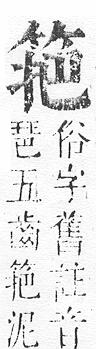 筢
俗字舊註音
琶五齒筢泥